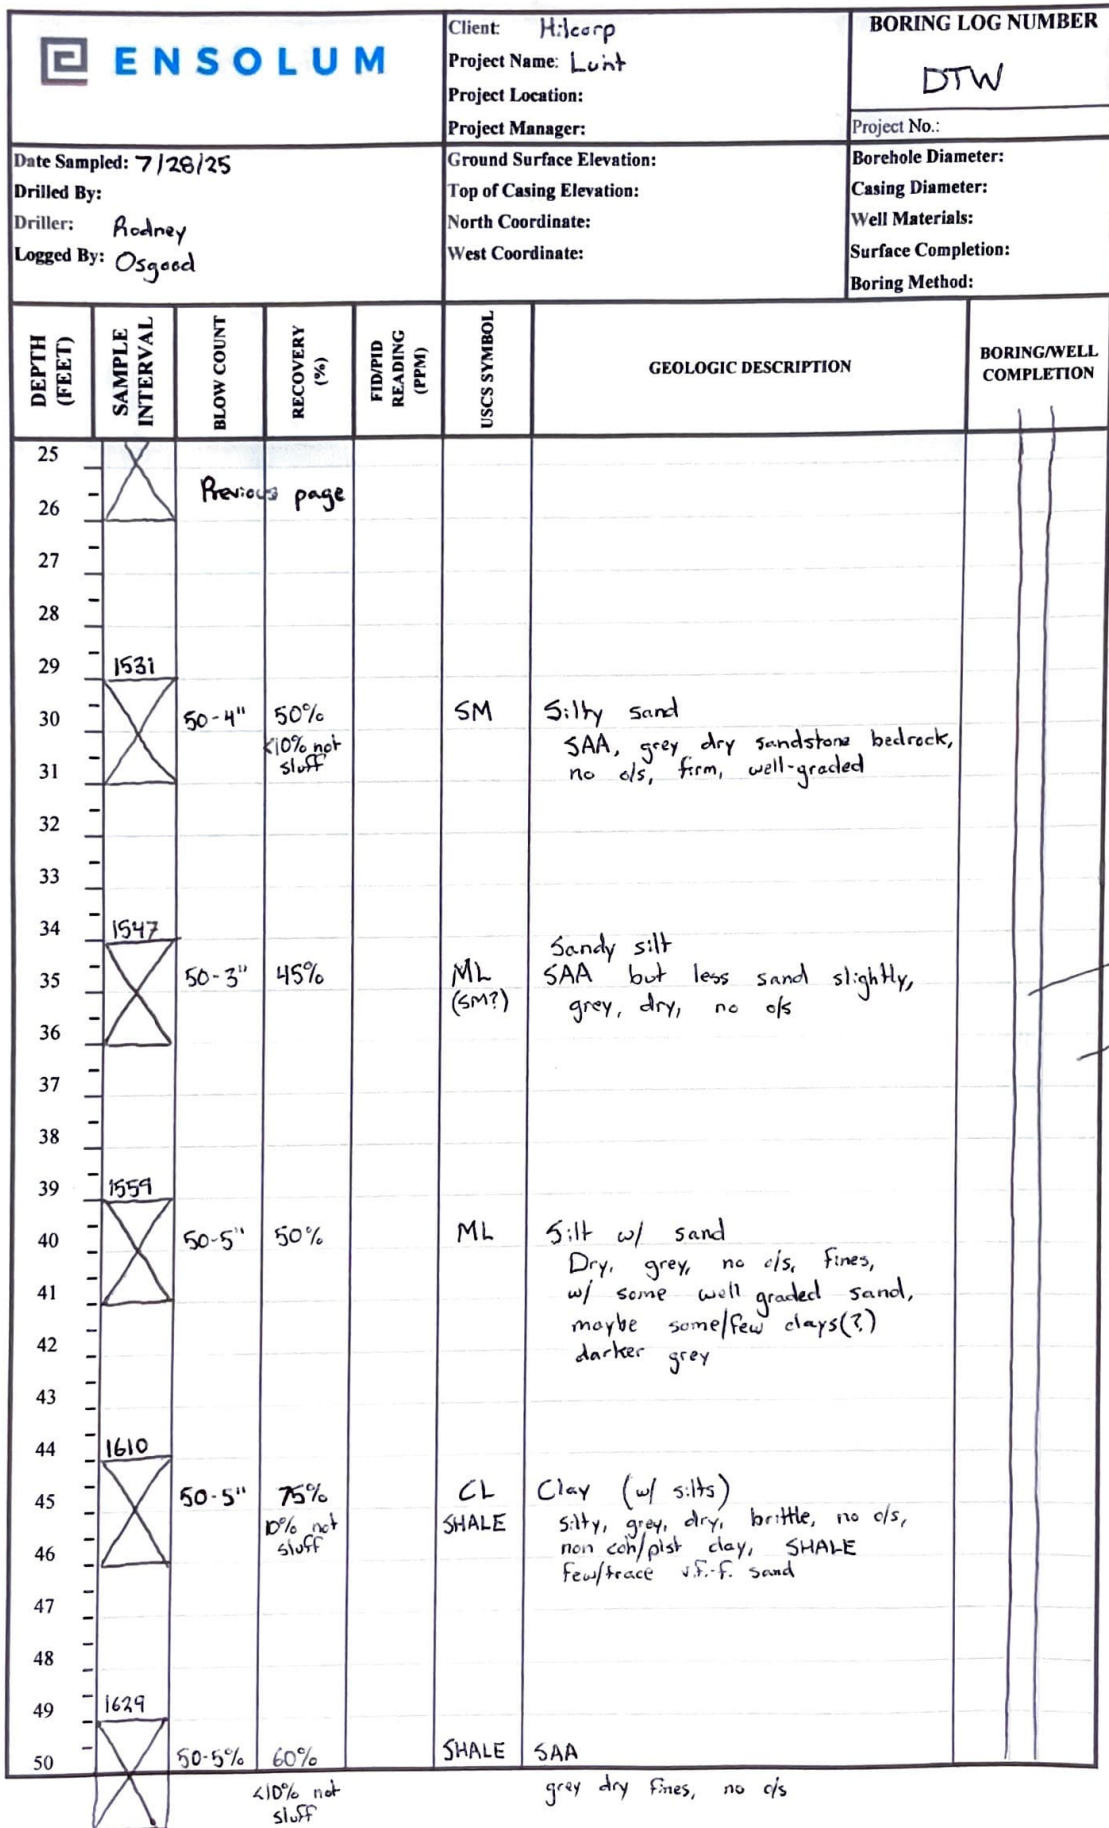 ENSOLUM
Client: Hilcorp
Project Name: Lunt
Project Location:
Project Manager:
BORING LOG NUMBER
DTW
Project No.:
Date Sampled: 7/28/25
Drilled By:
Driller: Rodney
Logged By: Osgood
Ground Surface Elevation:
Top of Casing Elevation:
North Coordinate:
West Coordinate:
Borehole Diameter:
Casing Diameter:
Well Materials:
Surface Completion:
Boring Method:
DEPTH (FEET)
SAMPLE INTERVAL
BLOW COUNT
RECOVERY (%)
FID/PID READING (PPM)
USCS SYMBOL
GEOLOGIC DESCRIPTION
BORING/WELL COMPLETION
25
Previous page
26
27
28
29 1531
30 50-4" 50% SM Silty sand
<10% not SAA, grey dry sandstone bedrock,
31 sluff no o/s, firm, well-graded
32
33
34 1547
Sandy silt
35 50-3" 45% ML SAA but less sand slightly,
(SM?) grey, dry, no o/s
36
37
38
39 1559
40 50-5" 50% ML Silt w/ sand
Dry, grey, no o/s, fines,
41 w/ some well graded sand,
maybe some/few clays(?)
42 darker grey
43
44 1610
45 50-5" 75% CL Clay (w/ silts)
10% not SHALE silty, grey, dry, brittle, no o/s,
46 sluff non coh/plst clay, SHALE
few/trace v.f.-f. sand
47
48
49 1629
50 50-5% 60% SHALE SAA
<10% not grey dry fines, no o/s
sluff